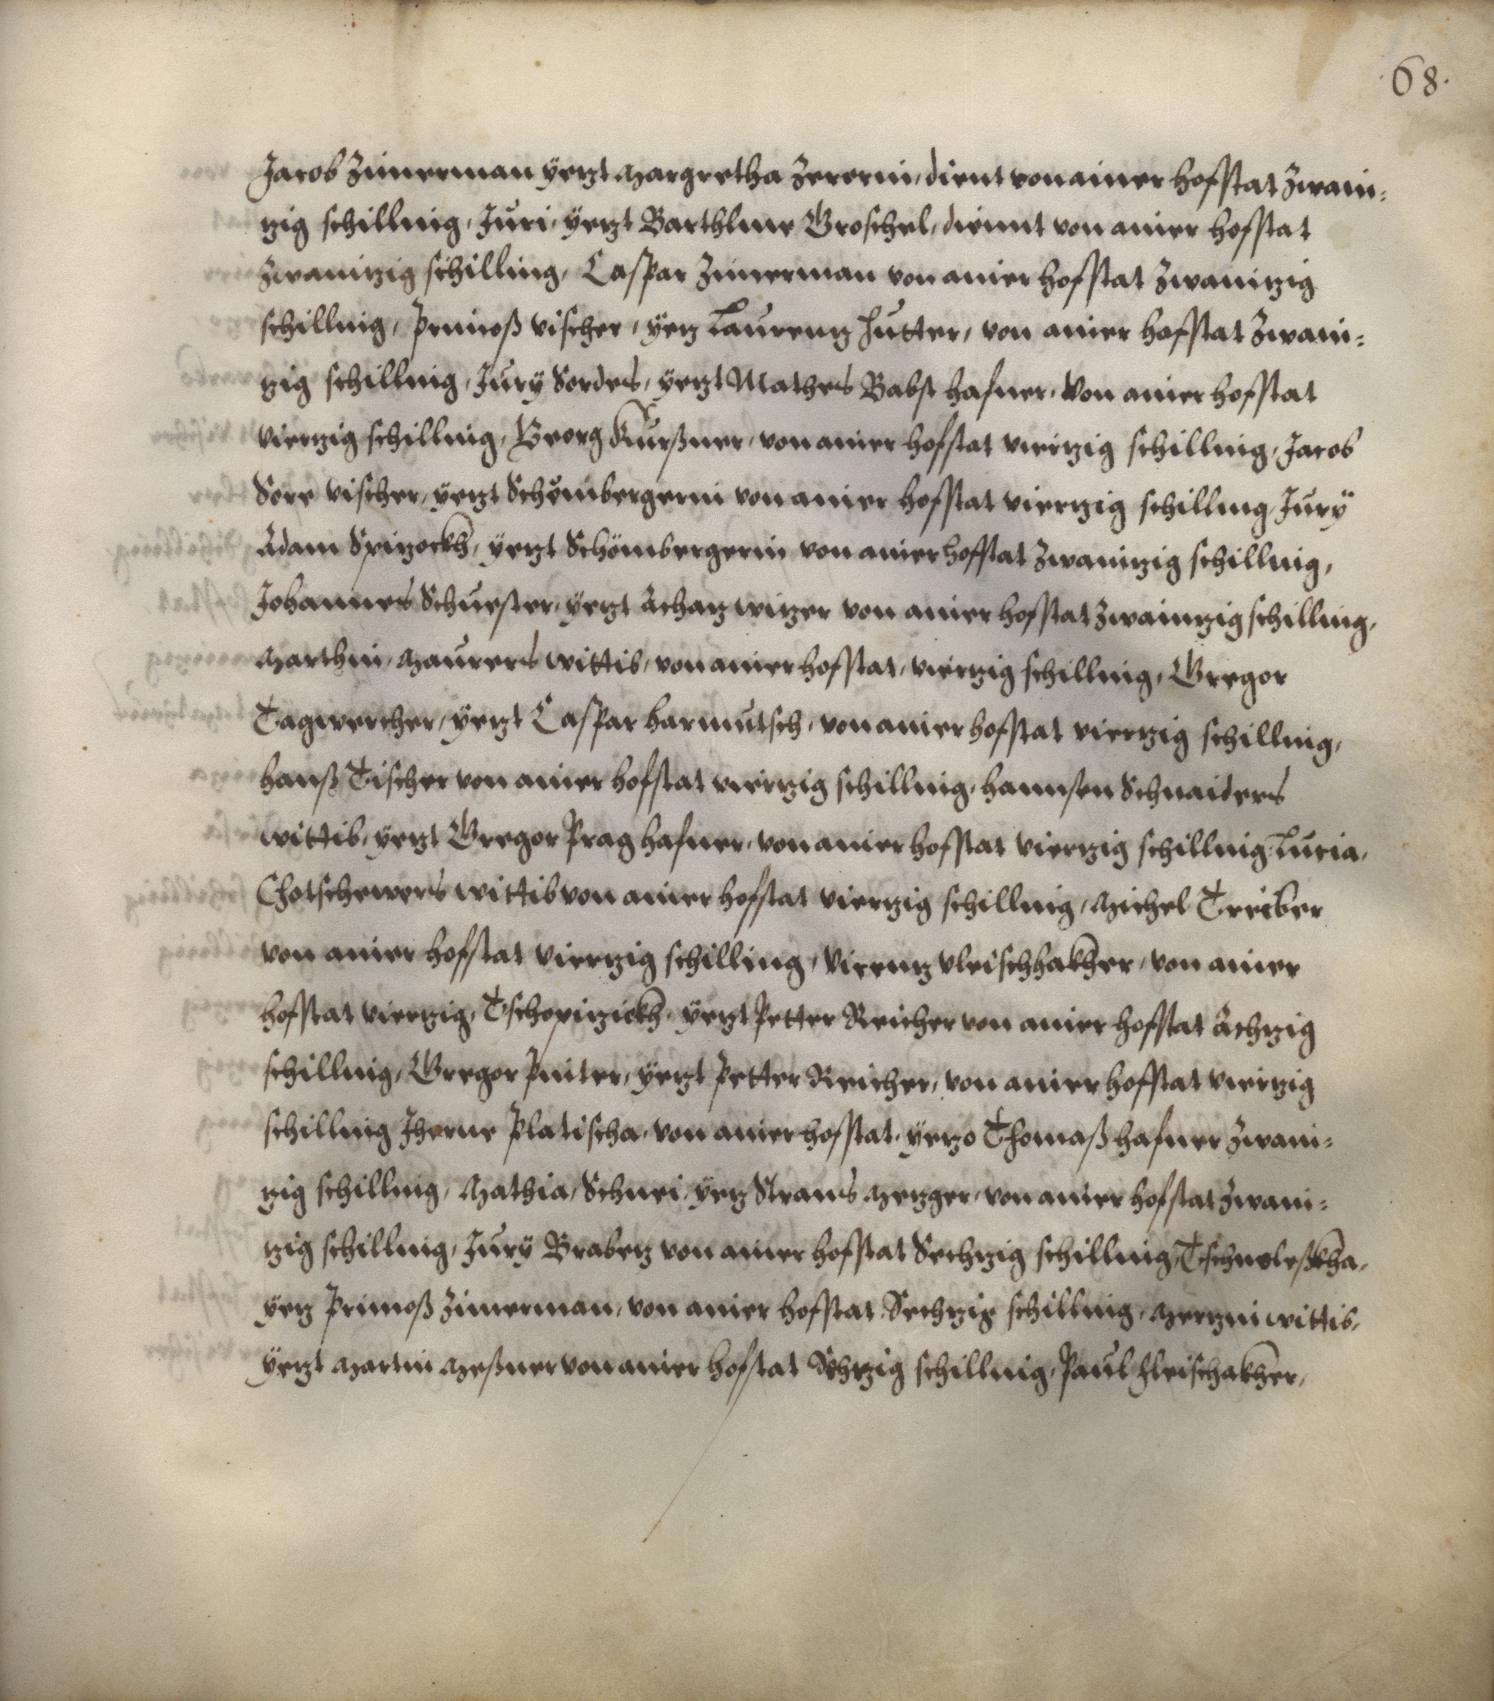 68.
Jacob Zimerman yetzt Margretha Zererin, dient von ainer hofstat Zwain-
tzig schilling, Juri, yetzt Barthlme Groschel, diennt von ainer hofstat
Zwaintzig schilling, Caspar Zimerman von ainer hofstat Zwaintzig
schilling, Primoß vischer, yetz Laurentz hutter, von ainer hofstat Zwain-
tzig schilling, Jury Sordes, yetzt Mathes Babst hafner, von ainer hofstat
viertzig schilling, Georg Kurßner, von ainer hofstat viertzig schilling, Jacob
Sore vischer, yetzt Schömbergerin von ainer hofstat viertzig schilling, Jury
Adam yetzt Schömbergerin von ainer hofstat Zwaintzig schilling,
Johannes Schuester, yetzt Achatz witzer von ainer hofstat Zwaintzig schilling,
Marthin, Maurers wittib, von ainer hofstat, viertzig schilling, Gregor
Tagwercher, yetzt Caspar harmutsch, von ainer hofstat viertzig schilling,
hanß Tischer von ainer hofstat viertzig schilling, hannsen Schnaiders
wittib, yetzt Gregor Prag hafner, von ainer hofstat viertzig schilling, Lucia,
Chotschewers wittib von ainer hofstat viertzig schilling, Michel Treiber
von ainer hofstat viertzig schilling, Vicentz vleischhakher, von ainer
hofstat viertzig, yetzt Petter Reicher von ainer hofstat Achtzig
schilling, Gregor Pinter, yetzt Petter Reicher, von ainer hofstat viertzig
schilling Jherne Platischa, von ainer hofstat, yetzo Thomaß hafner Zwain-
tzig schilling, Mathia, yetz Strauß Metzger, von ainer hofstat Zwain-
tzig schilling, Jury Grabetz von ainer hofstat Sechtzig schilling,
yetz Primoß Zimerman, von ainer hofstat Sechtzig schilling, wittib,
yetzt Martin Meßner von ainer hofstat Sechtzig schilling, Paul fleischakher,